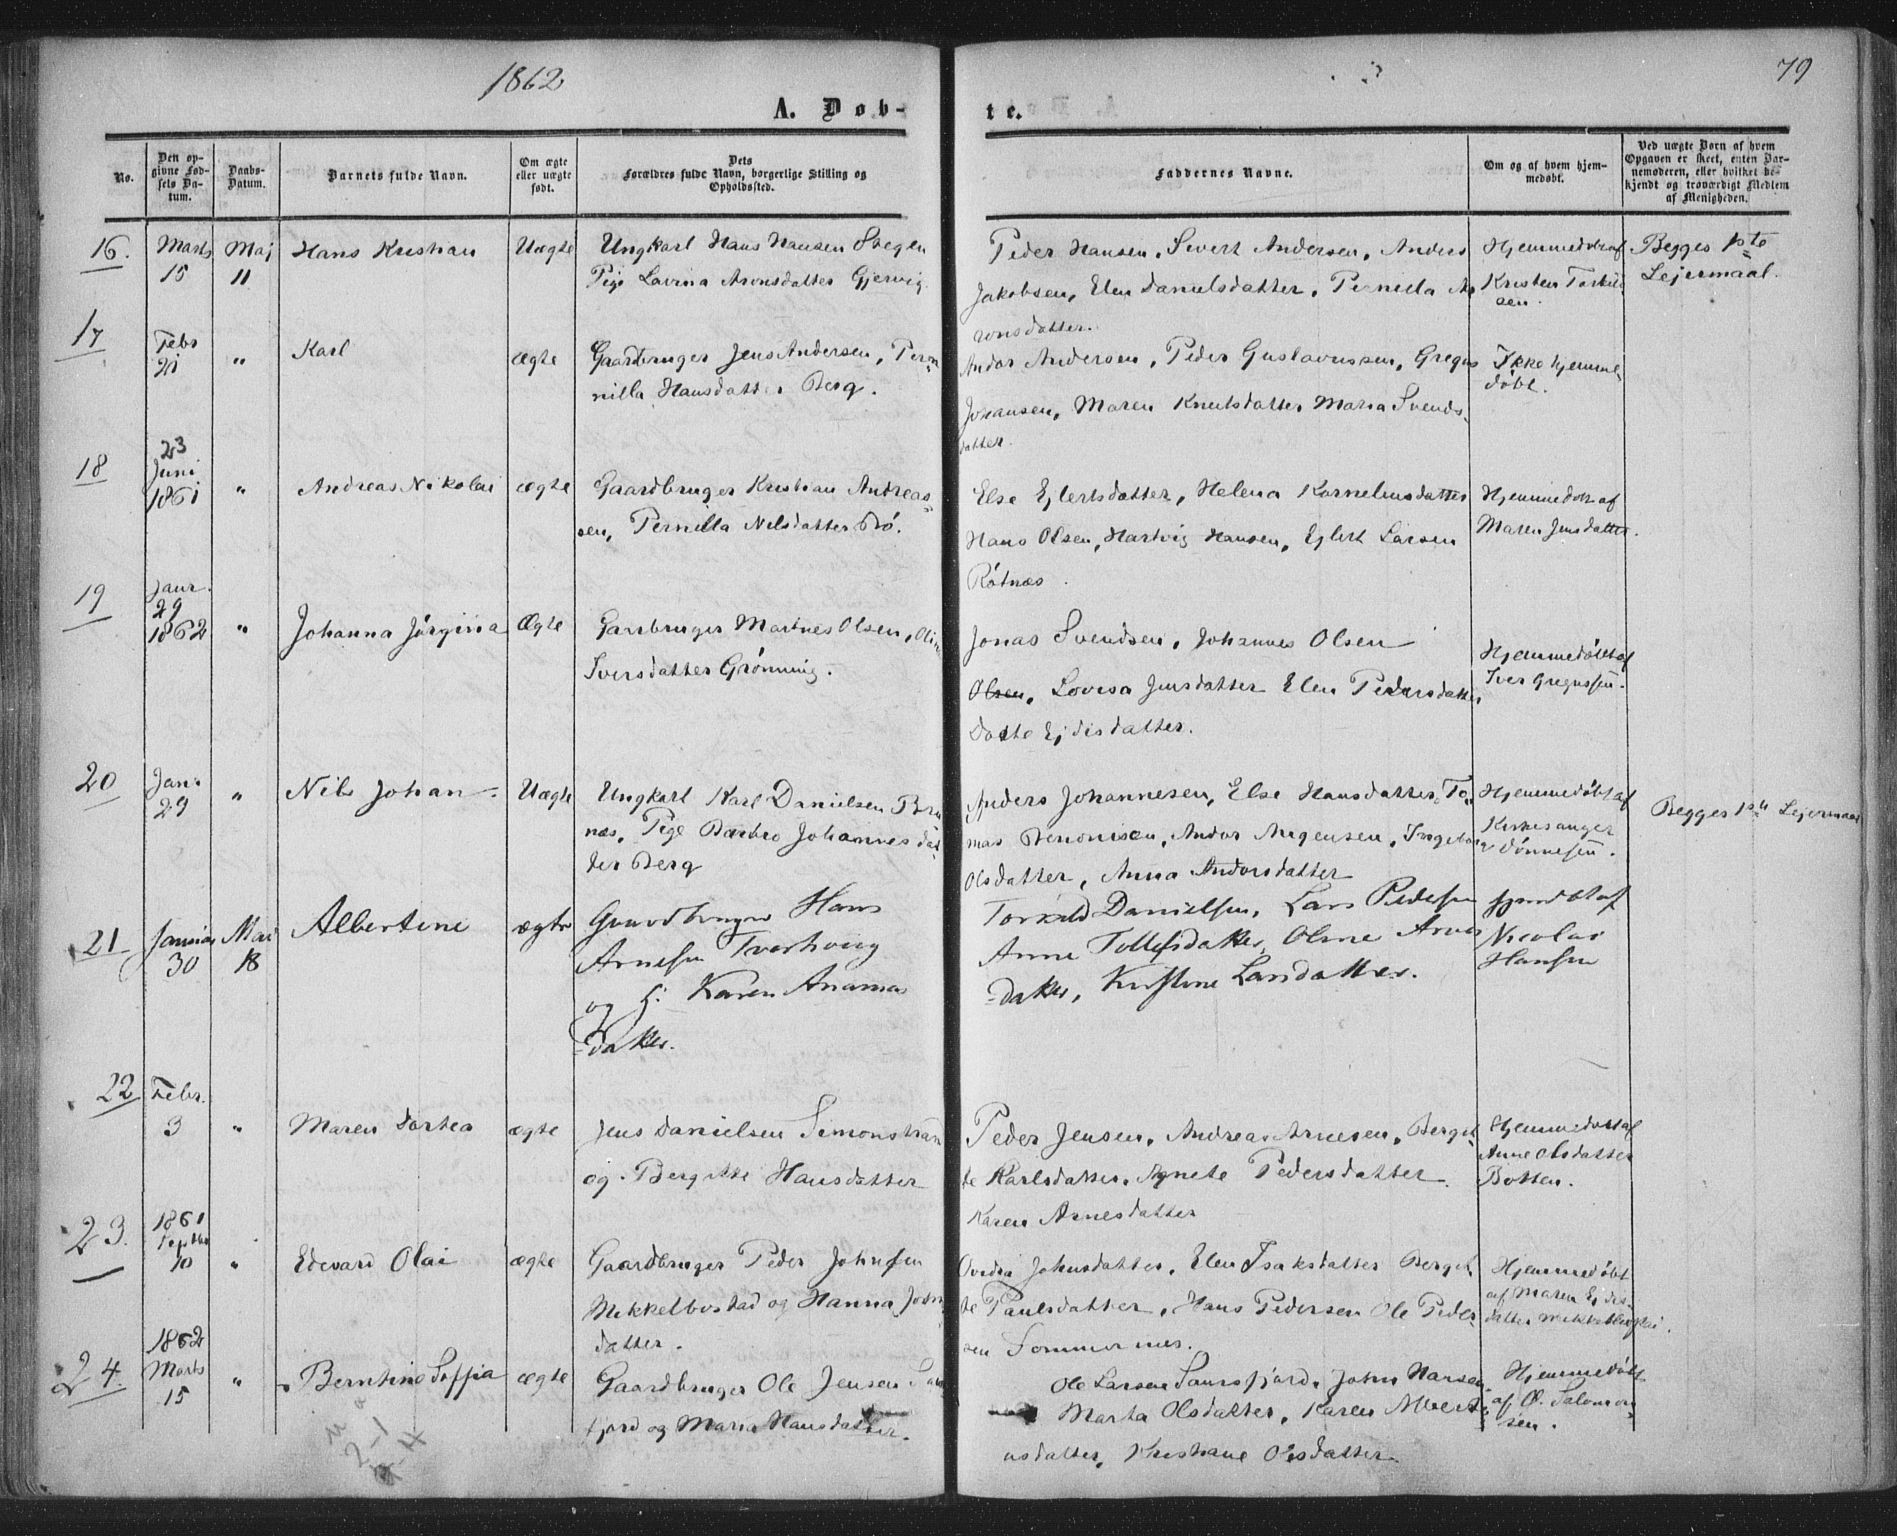 1862
79
A. Døb-
te.
No.
Den op-
givne Fød-
sels Da-
tum.
Daabs-
Datum.
Barnets fulde Navn.
Om ægte
eller uægte
født.
Dets
Forældres fulde Navn, borgerlige Stilling og
Opholdssted.
Faddernes Navne.
Om og af hvem hjem-
medøbt.
Ved uægte Børn af hvem
Opgaven er skeet, enten Bar-
nemoderen, eller hvilket be-
kjendt og troværdigt Medlem
af Menigheden.
16.
Marts
15
Maj
11
Hans Kristian
Uægte
Ungkarl Hans Hansen
Pige Lavina Aronsdatter Gjervig
Peder Hansen, Sivert Andersen, Anders
Jakobsen, Elen Danielsdatter, Pernilla Aa
ronsdatter.
Hjemmedøbt af
Kristen Torkild
sen.
Begges 1ste
Lejermaal.
17
Febr
21
"
Karl
ægte
Gaardbruger Jens Andersen, Per
nilla Hansdatter Berg.
Andor Andersen, Peder Gustavussen, Gregus
Johansen, Maren Knutsdatter Maria Svends-
datter.
Ikke hjemme-
døbt.
18
23
Juni
1861
"
Andreas Nikolai
ægte
Gaardbruger Kristian Andreas
sen, Pernilla Nilsdatter Bø.
Else Ejlertsdatter, Helena Korneliusdatter
Hans Olsen, Hartvig Hansen, Ejlert Larsen
Rötnæs.
Hjemmedøbt af
Maren Jensdatter.
19
Janr.
29
1862
"
Johanna Jørgina
Ægte
Garrbruger Martnes Olsen, Olina
Iversdatter Grønning.
Jonas Svendsen, Johannes Olsen
Olsen, Lovisa Jensdatter Elen Pedersdatter
Dorte Ejdisdatter.
Hjemmedøbt af
Iver Gregussen.
20
Janr
29
"
Nils Johan
Uægte
Ungkarl Karl Danielsen
næs, Pige Barbro Johannesdat
ter Berg
Anders Johannesen, Else Hansdatter, To
mas Benonisen, Andor Angensen, Ingeborg
Olsdatter, Anna Andorsdatter
Hjemmedøbt af
Kirkesanger
Dønnesen.
Begges 1ste Lejermaal
21
Januar
30
Mai
18
Albertine
ægte
Gaardbruger Hans
Arnesen Tverhvig
og H: Karen Ananias
-datter.
Torkild Danielsen, Lars Pedersen
Anne Tollefsdatter, Oline Arons
-datter, Kirstine Larsdatter.
Hjemdøbt af
Nicolai
Hansen
22
Febr.
3
"
Maren Dortea
ægte
Jens Danielsen Simonstrand
og Bergitte Hansdatter
Peder Jensen, Andreas Arnesen, Bergit
te Karlsdatter, Agnete Pedersdatter.
Karen Arnesdatter
Hjemmedøbt af
Anne Olsdatter
Botten.
23.
1861
Septbr
10
"
Edevard Olai
ægte
Gaardbruger Peder Johnsen
Mikkelbostad og Hanna John
datter.
Ovidia Johnsdatter, Elen Isaksdatter Bergit
te Paulsdatter, Hans Pedersen Ole Peder
sen Sommernes.
Hjemmedøbt
af Maren Ejdis-
datter
24.
1862
Marts
15
"
Berntine Soffia
ægte
Gaardbruger Ole Jensen Saur
fjord og Maria Hansdatter.
Ole Larsen Saursfjord, John Hansen
Marta Olsdatter, Karen Albert
usdatter, Kristiane Olesdatter
Hjemmedøbt
af O. Salomon
sen.
2-1